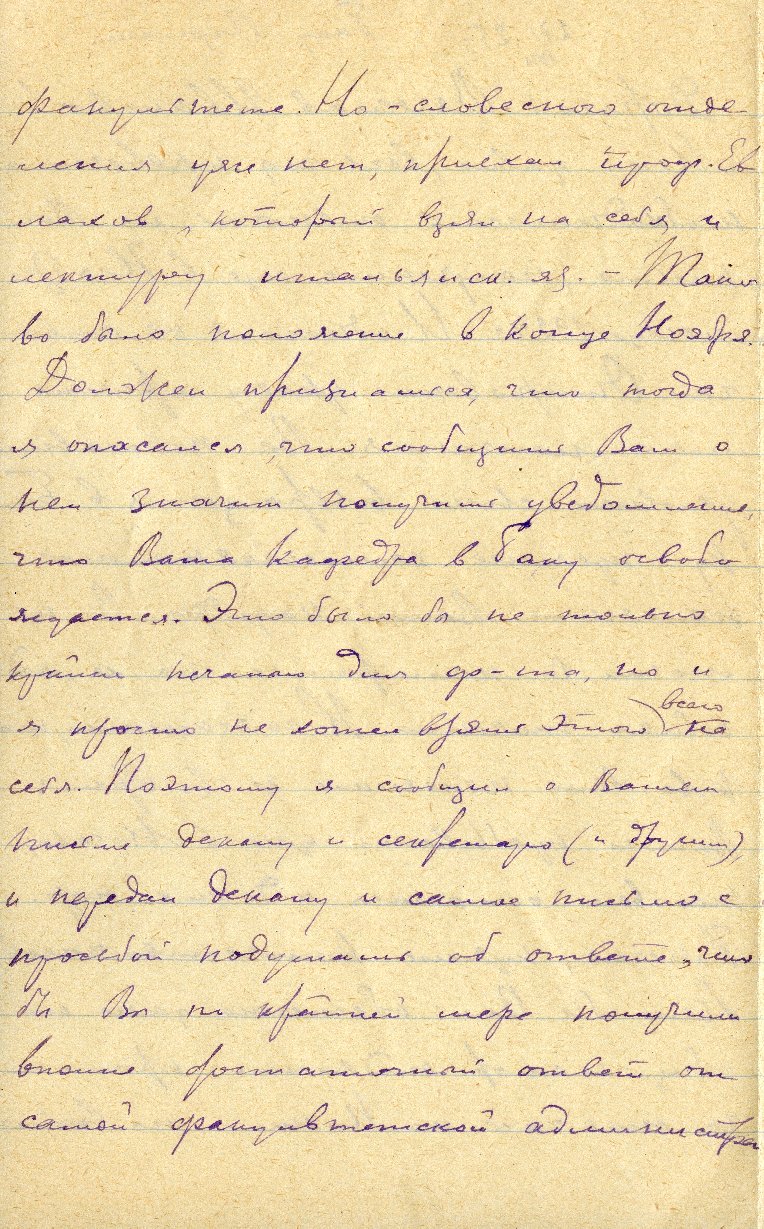 факультете. Но -словесного отде
ления уже нет, приехал проф. Ев
лахов, который взял на себя и
лектуру итальянск. яз. - Тако
во было положение в конце Ноября.
Должен признаться, что тогда
я опасался, что сообщить Вам о
нем значит получить уведомление,
что Ваша кафедра в Баку освобо
ждается. Это было бы не только
крайне печально для ф-та, но и
я просто не хотел взять этого всего на
себя. Поэтому я сообщил о Вашем
письме декану и секретарю (и другим),
и передал декану и самое письмо с
просьбой подумать об ответе, что
бы Вы по крайней мере получили
вполне достаточный ответ от
самой факультетской администра